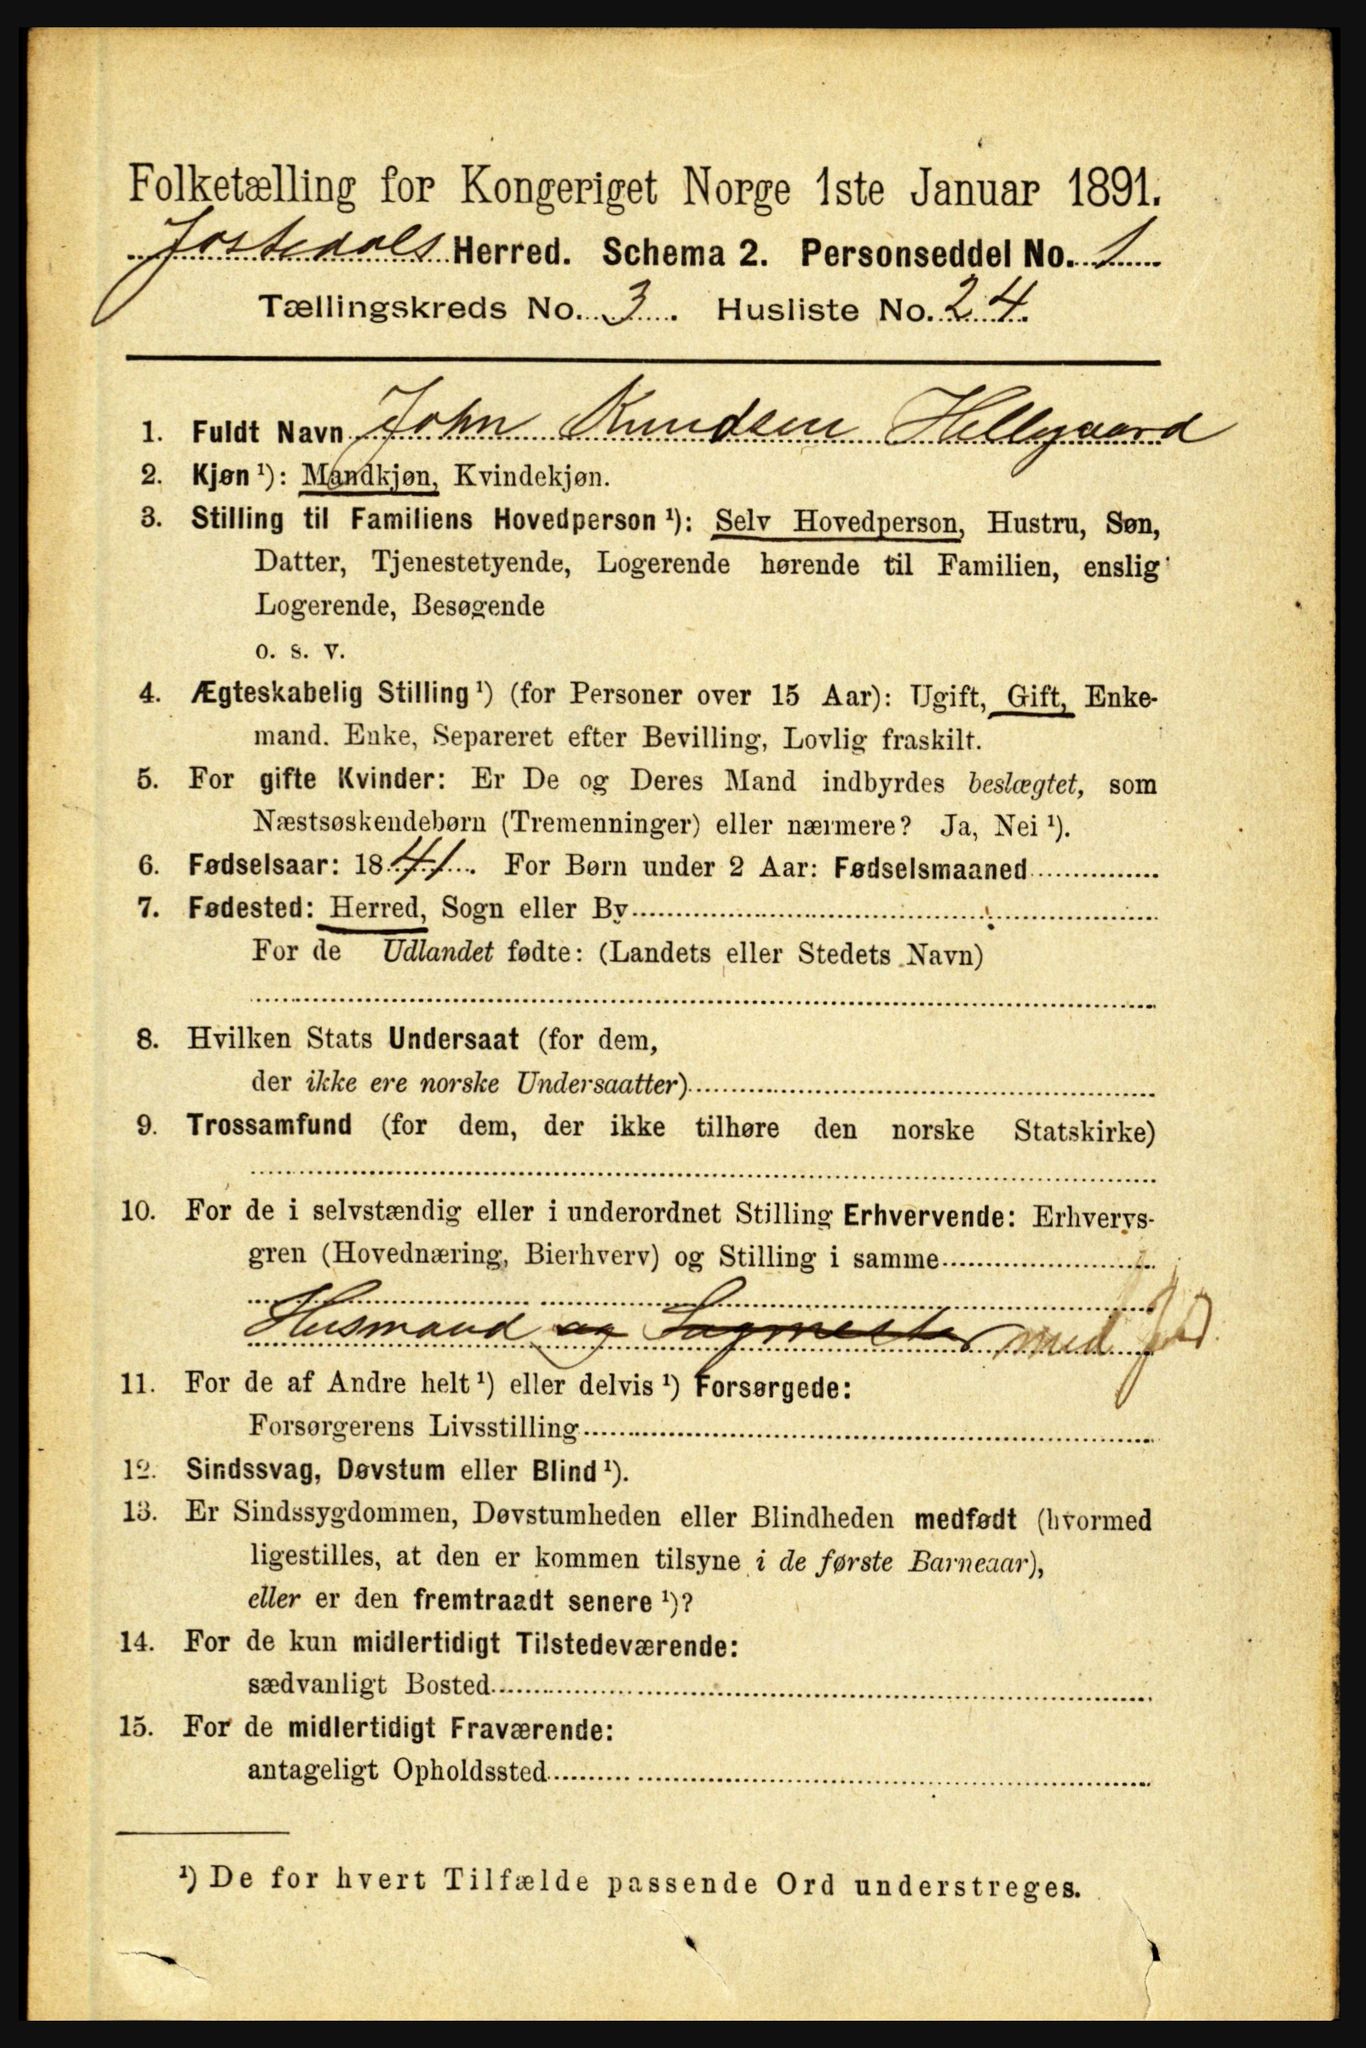 Folketælling for Kongeriget Norge 1ste Januar 1891.
Jostedals Herred. Schema 2. Personseddel No. 1
Tællingskreds No. 3. Husliste No. 24.
1. Fuldt Navn John Knudsen Hellegaard
2. Kjøn ¹): Mandkjøn, Kvindekjøn.
3. Stilling til Familiens Hovedperson ¹): Selv Hovedperson, Hustru, Søn,
Datter, Tjenestetyende, Logerende hørende til Familien, enslig
Logerende, Besøgende
o. s. v.
4. Ægteskabelig Stilling ¹) (for Personer over 15 Aar): Ugift, Gift, Enke-
mand. Enke, Separeret efter Bevilling, Lovlig fraskilt.
5. For gifte Kvinder: Er De og Deres Mand indbyrdes beslægtet, som
Næstsøskendebørn (Tremenninger) eller nærmere? Ja, Nei ¹).
6. Fødselsaar: 1841. For Børn under 2 Aar: Fødselsmaaned
7. Fødested: Herred, Sogn eller By
For de Udlandet fødte: (Landets eller Stedets Navn)
8. Hvilken Stats Undersaat (for dem,
der ikke ere norske Undersaatter)
9. Trossamfund (for dem, der ikke tilhøre den norske Statskirke)
10. For de i selvstændig eller i underordnet Stilling Erhvervende: Erhvervs-
gren (Hovednæring, Bierhverv) og Stilling i samme
Husmand og Sagmester med Jord
11. For de af Andre helt ¹) eller delvis ¹) Forsørgede:
Forsørgerens Livsstilling
12. Sindssvag, Døvstum eller Blind ¹).
13. Er Sindssygdommen, Døvstumheden eller Blindheden medfødt (hvormed
ligestilles, at den er kommen tilsyne i de første Barneaar),
eller er den fremtraadt senere ¹)?
14. For de kun midlertidigt Tilstedeværende:
sædvanligt Bosted
15. For de midlertidigt Fraværende:
antageligt Opholdssted
¹) De for hvert Tilfælde passende Ord understreges.